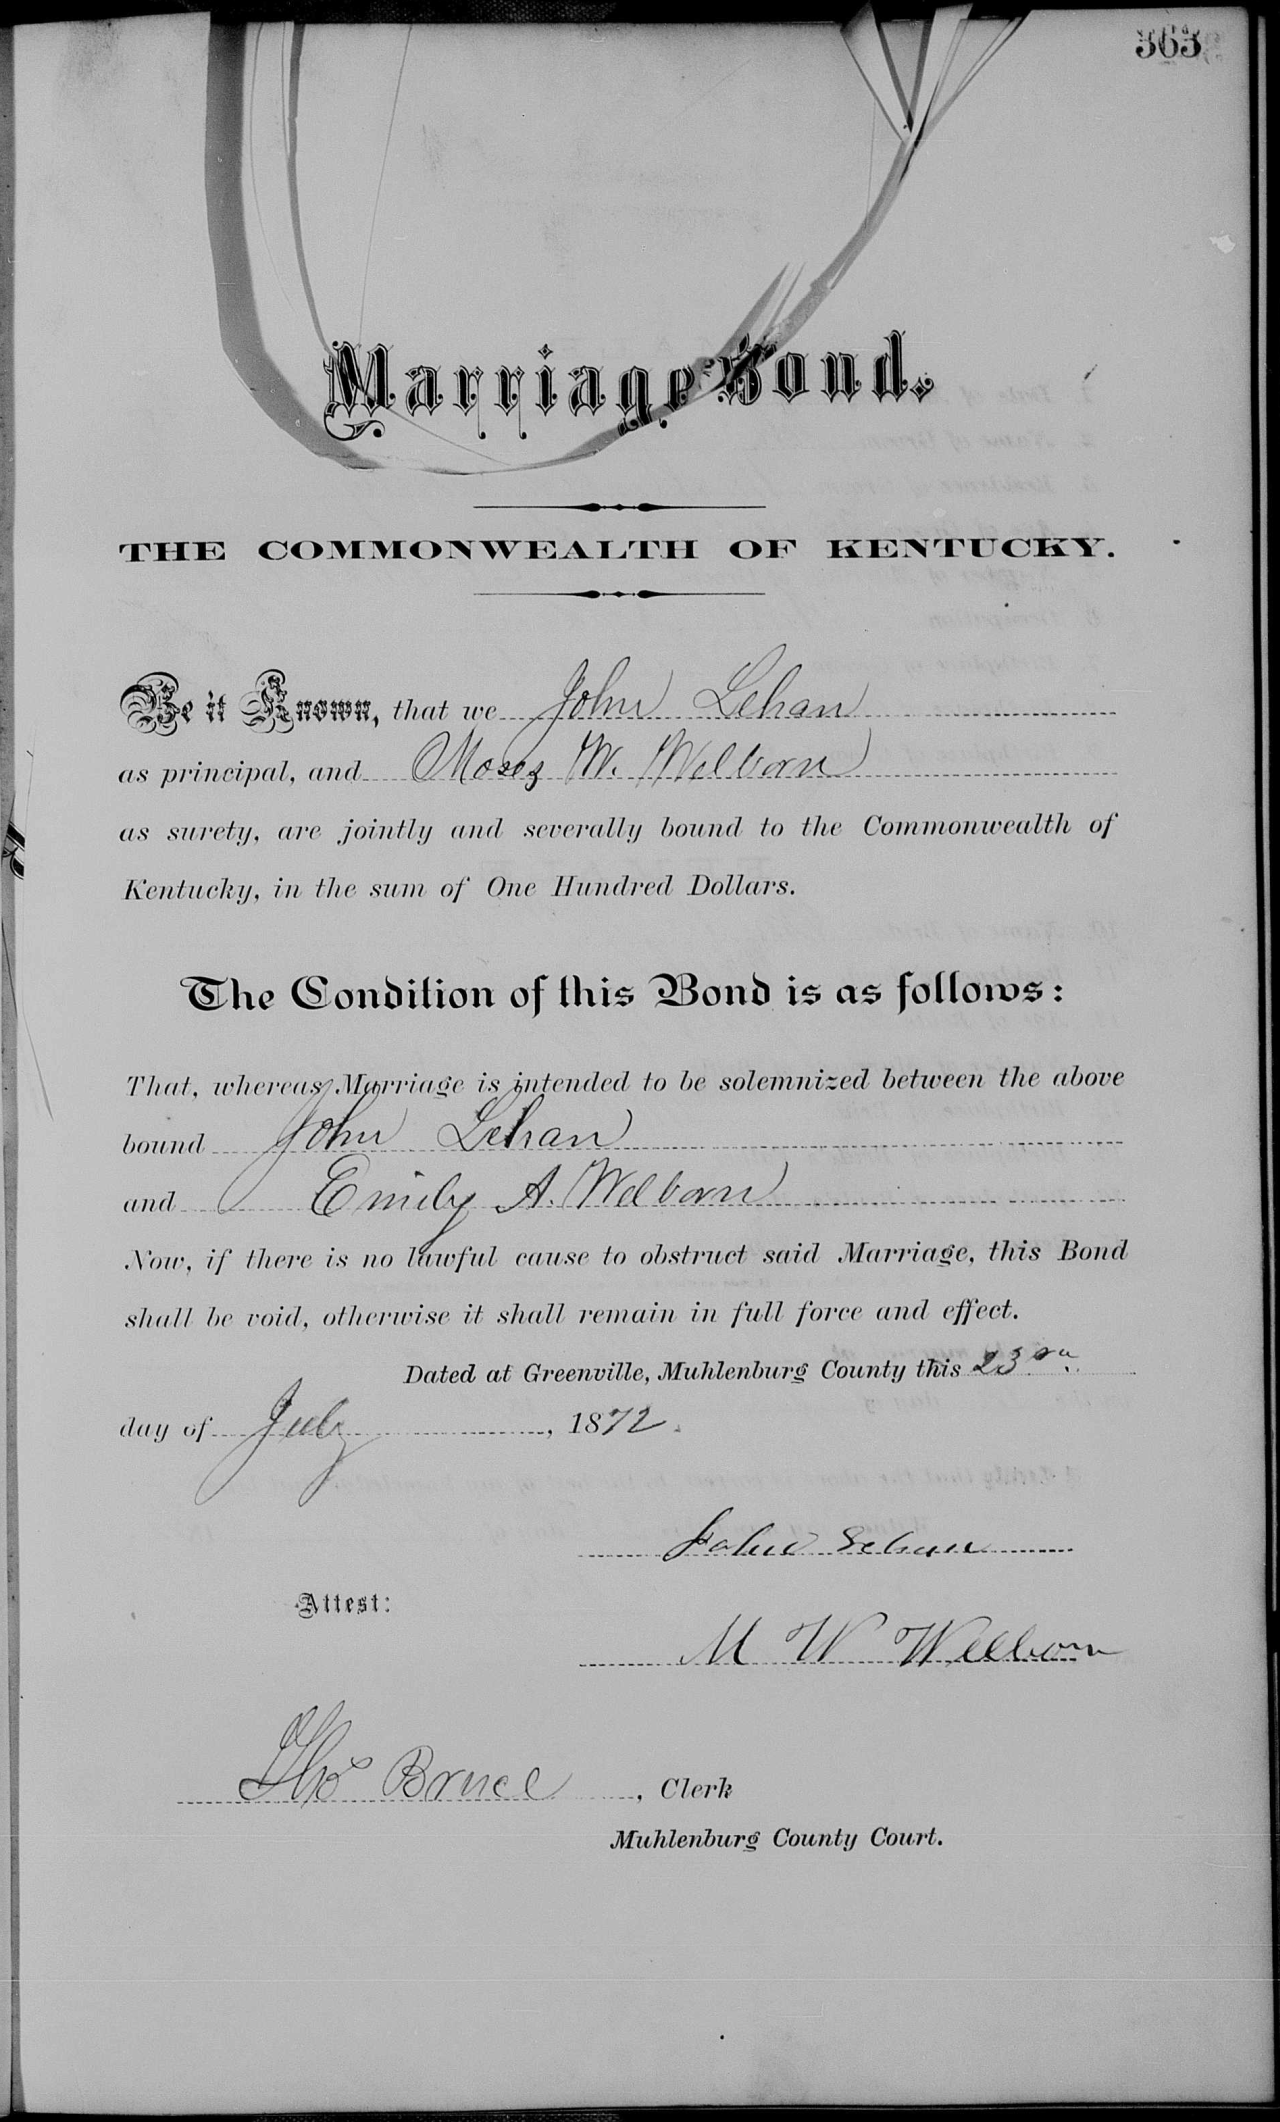 363
Marriage Bond.
THE COMMONWEALTH OF KENTUCKY.
Be it Known, that we John Lehan
as principal, and Moses W. Welborn
as surety, are jointly and severally bound to the Commonwealth of
Kentucky, in the sum of One Hundred Dollars.
The Condition of this Bond is as follows:
That, whereas, Marriage is intended to be solemnized between the above
bound John Lehan
and Emily A. Welborn
Now, if there is no lawful cause to obstruct said Marriage, this Bond
shall be void, otherwise it shall remain in full force and effect.
Dated at Greenville, Muhlenburg County this 23rd
day of July, 1872.
John Lehan
Attest:
M W Welborn
Thos Bruce, Clerk
Muhlenburg County Court.